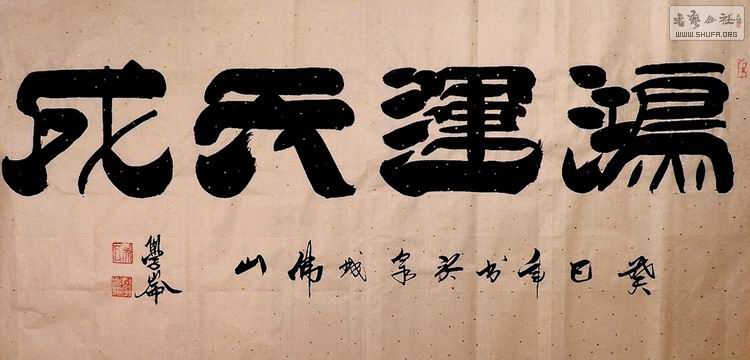 鴻運天成
癸巳年书於泉城佛山
學崙
书艺公社
WWW.SHUFA.ORG